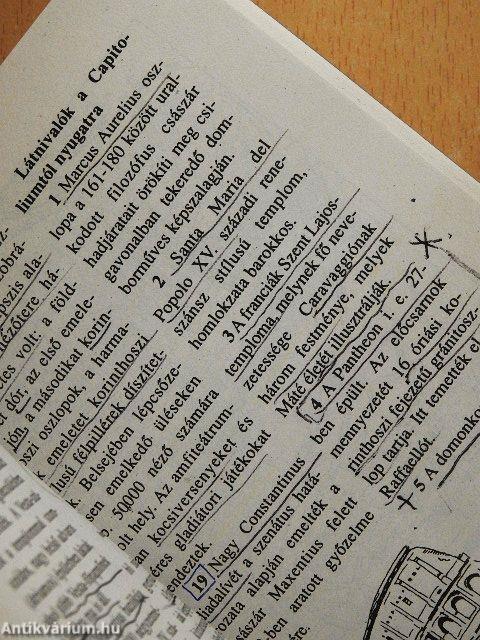 Látnivalók a Capito-
liumtól nyugatra
1 Marcus Aurelius osz-
lopa a 161-180 között ural-
kodott filozófus császár
hadjáratait örökíti meg csi-
gavonalban tekeredő dom-
borműves képszalagján.
2 Santa Maria del
Popolo XV. századi rene-
szánsz stílusú templom,
homlokzata barokkos.
3 A franciák Szent Lajos-
temploma, melynek fő neve-
zetessége Caravaggiónak
három festménye, melyek
Máté életét illusztrálják.
4 A Pantheon i. e. 27-
ben épült. Az előcsarnok
mennyezetét 16 óriási ko-
rinthoszi fejezetű gránitosz-
lop tartja. Itt temették el
Raffaellót.
5 A domonko
volt: a föld-
dór, az első emele-
a másodikat korin-
szi oszlopok, a harma-
emeletet korinthoszi
usú félpillérek díszítet-
k. Belsejében lépcsőze-
sen emelkedő üléseken
50000 néző számára
ilt hely. Az amfiteátrum-
an kocsiversenyeket és
éres gladiátori játékokat
endeztek.
19 Nagy Constantinus
iadalívét a szenátus hatá-
ozata alapján emelték a
császár Maxentius felett
-ben aratott győzelme
Antikvárium.hu